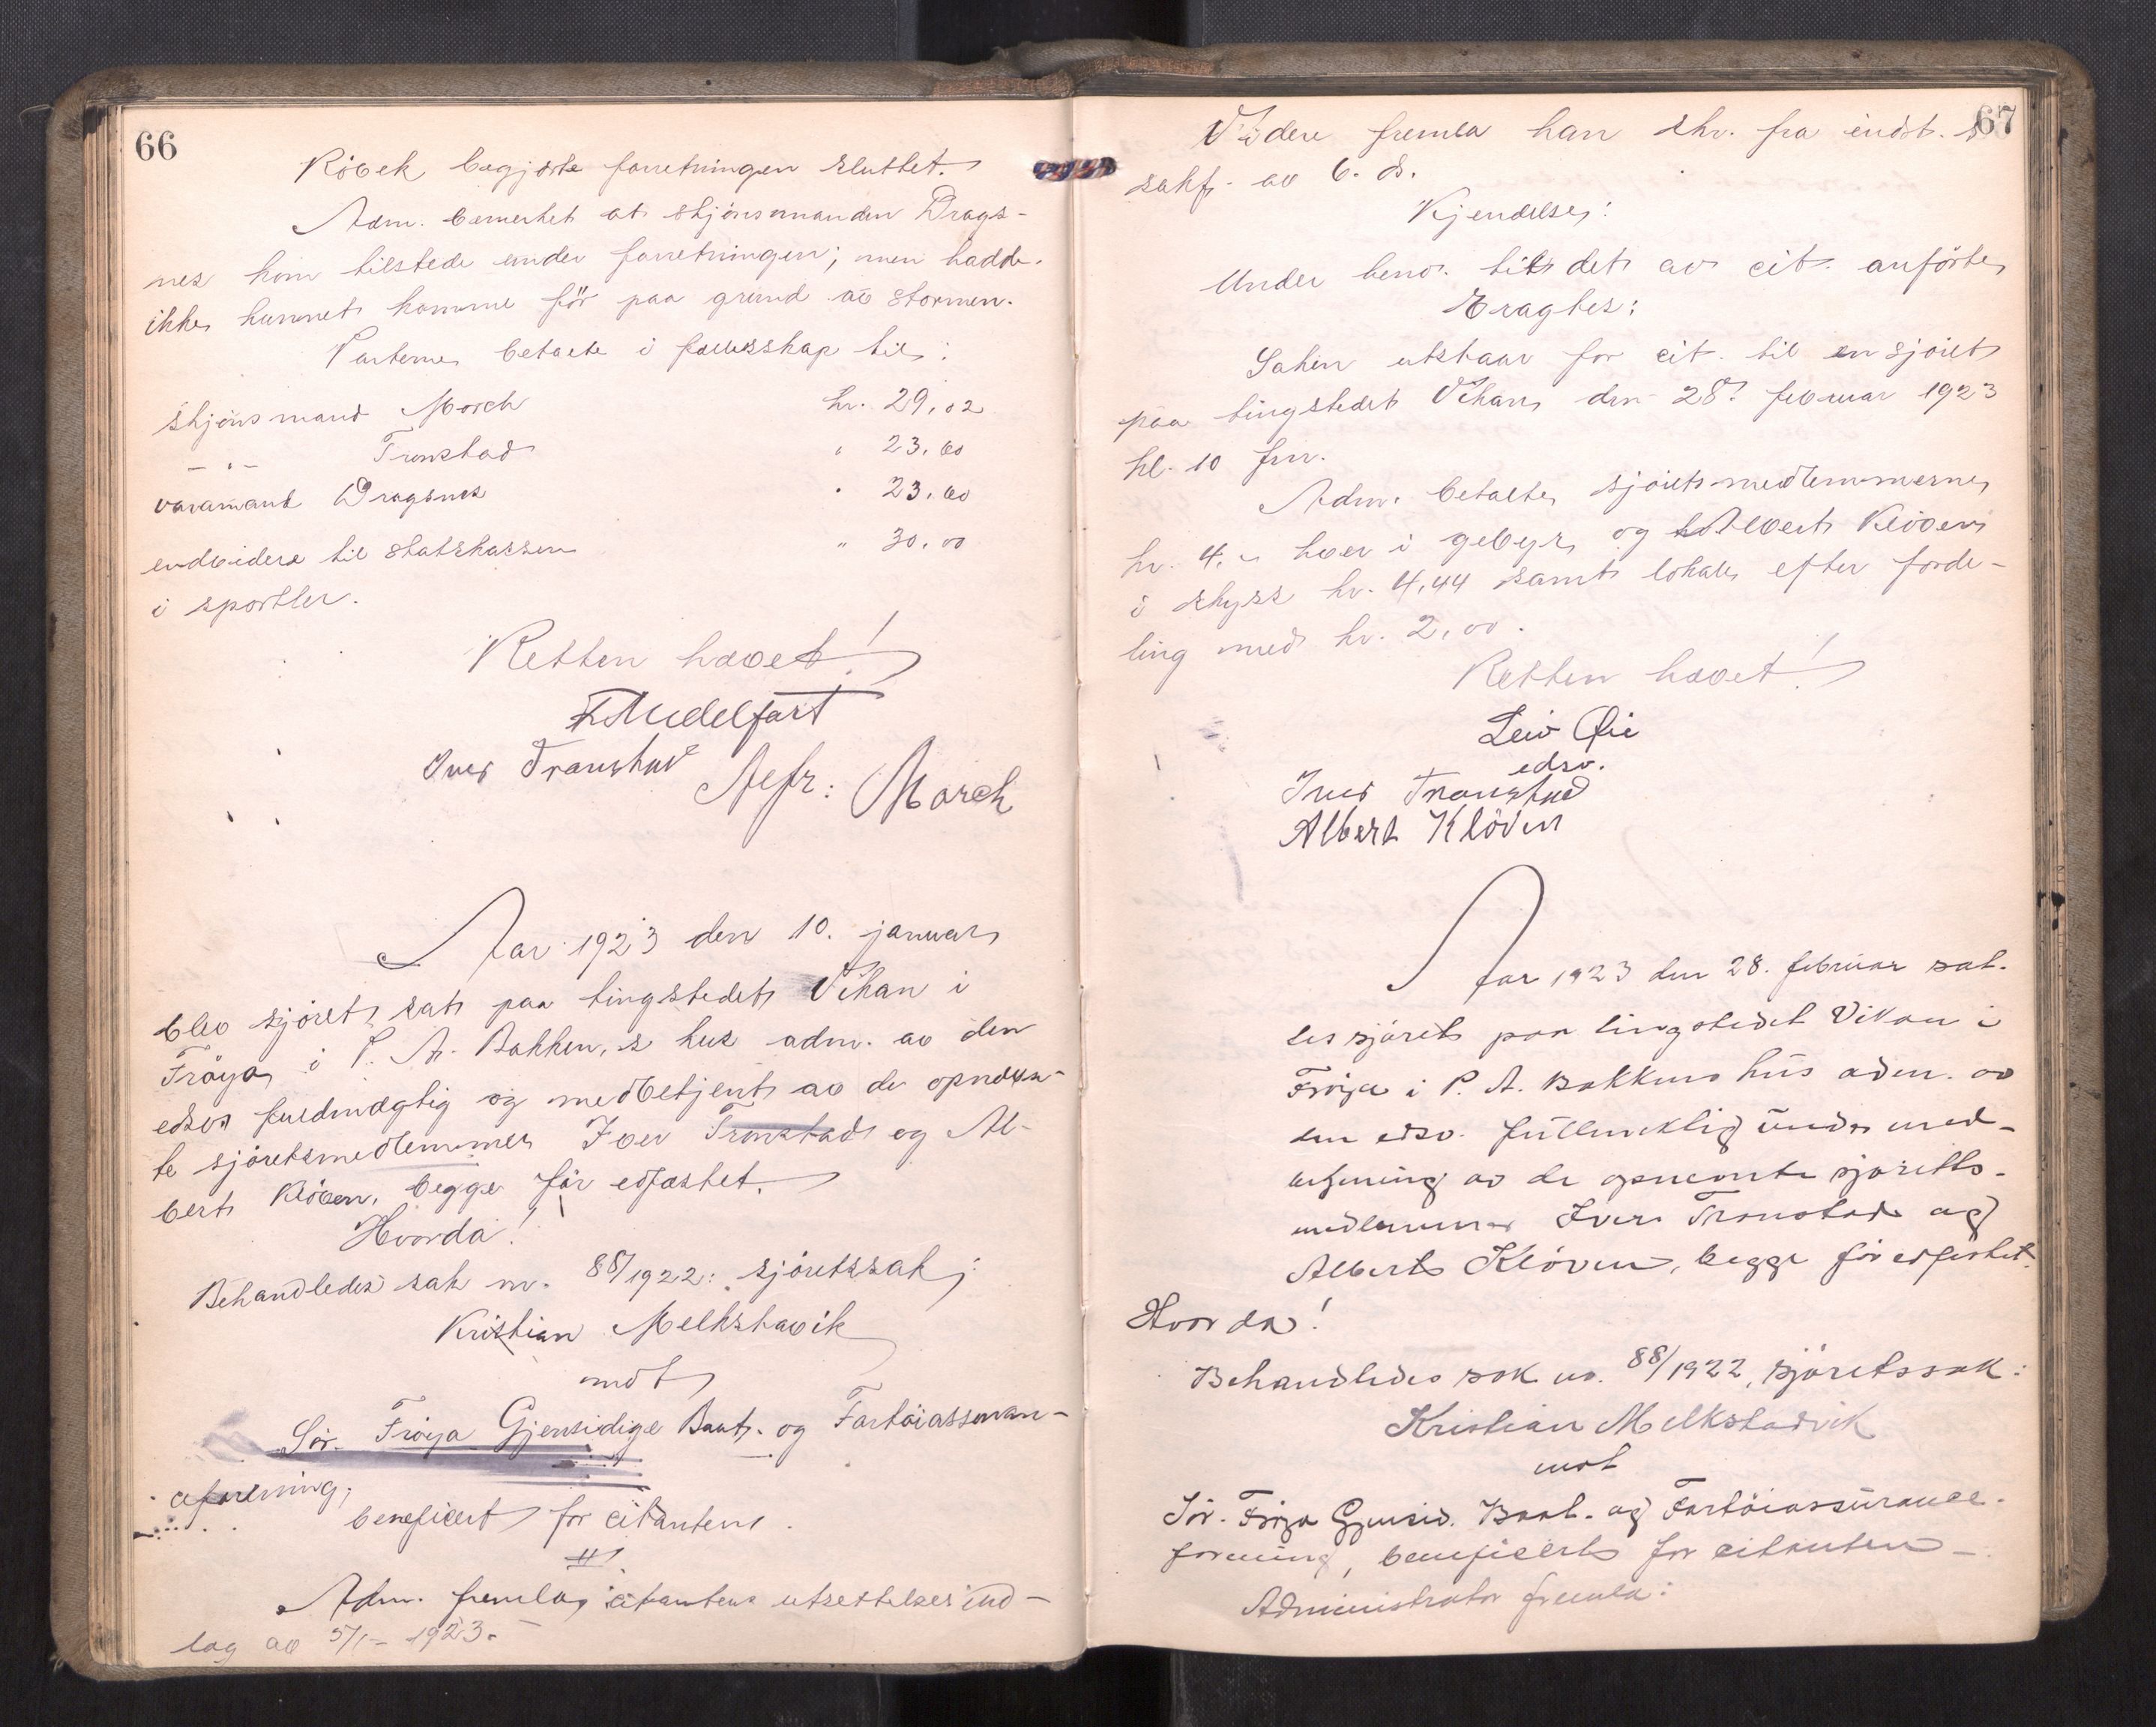 66
Røvek begjærte forretningen sluttet.
Adm. bemerket at skjønsmanden Drags-
nes kom tilstede under forretningen; men hadde
ikke kunnet komme før paa grund av stormen.
Parterne betalte i fællesskap til:
skjønsmand Morch kr. 29,02
- " - Tronstad " 23.60
varamand Dragsnes " 23.60
endvidere til statskassen " 30.00
i sportler.
Retten hævet!
Iver Tronstad Alfr: Morch
Aar 1923 den 10. januar
blev sjøret sat paa tingstedet Vikan i
Frøya i P. A. Bakken,s hus adm. av den
edsv. fuldmægtig og medbetjent av de opnævn-
te sjøretsmedlemmer Iver Tronstad og Al-
bert Kløven, begge før edfæstet.
Hvorda!
Behandledes sak nr. 88/1922: sjøretssak;
Kristian Melkstavik
mot
Sør-Frøya Gjensidige Baat- og Fartøiassuran-
ceforening;
beneficert for citanten.
Adm. fremla citantens utsettelsesind-
læg av 5/1- 1923.
67
Videre fremla han skr. fra indst. s
sakf. av 6. ds.
Kjendelse:
Under henv. til det av cit. anførte
Eragtes:
Saken utstaar for cit. til en sjøret
paa tingstedet Vikan den 28. februar 1923
kl. 10 fm.
Adm. betalte sjøretsmedlemmerne
kr. 4.- hver i gebyr og Albert Kløven
i skyss kr. 4,44 samt lokale efter forde-
ling med kr. 2,00.
Retten hævet!
Leiv Øie
edsv.
Iver Tronstad
Albert Kløven
Aar 1923 den 28. februar sat-
tes sjøret paa tingstedet Vikan i
Frøya i P. A. Bakkens hus adm. av
den edsv. fullmektig under med-
betjening av de opnevnte sjøretts-
medlemmer Iver Tronstad og
Albert Kløven, begge før edfestet.
Hvorda!
Behandledes sak nr. 88/1922, sjøretssak:
Kristian Melkstadvik
mot
Sør-Frøya Gjensid. Baat- og Fartøiassurance-
forening, beneficert for citanten -.
Administrator fremla: